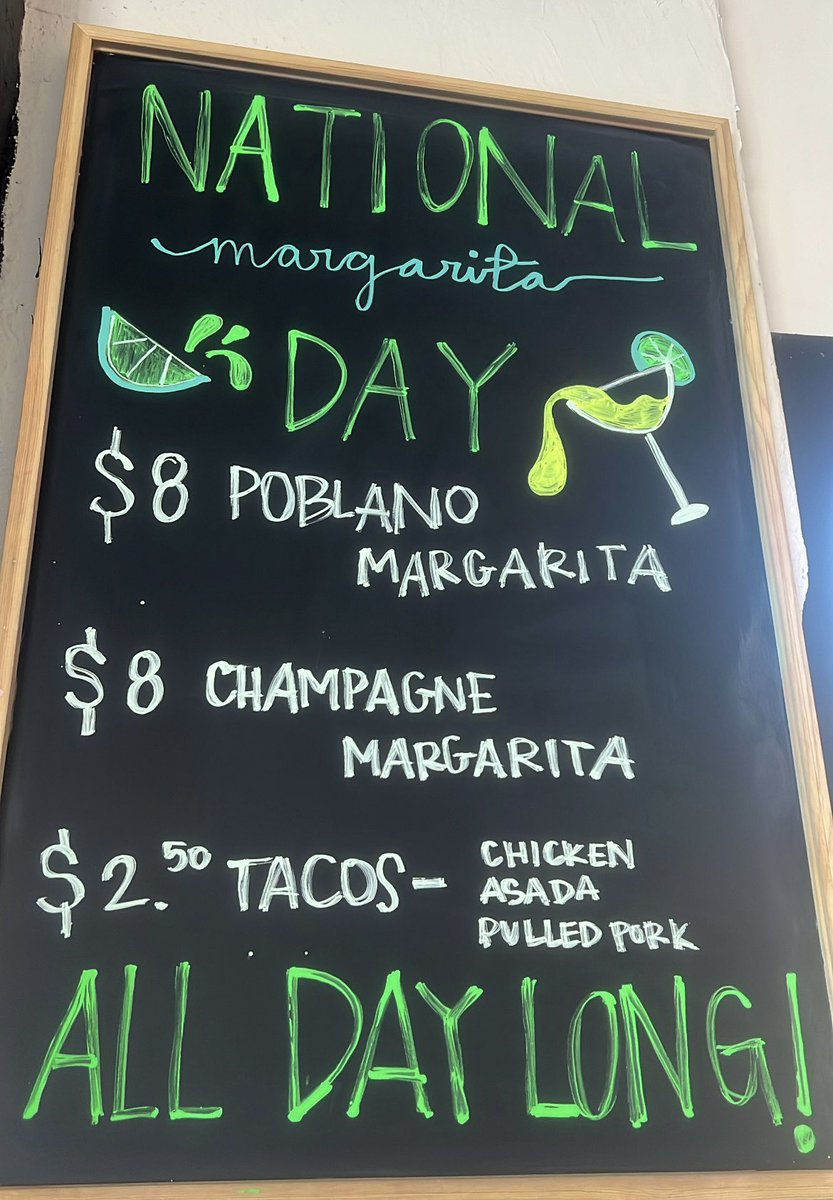 NATIONAL
margarita
DAY
$8 POBLANO
MARGARITA
$8 CHAMPAGNE
MARGARITA
$2.50 TACOS- CHICKEN
ASADA
PULLED PORK
ALL DAY LONG!